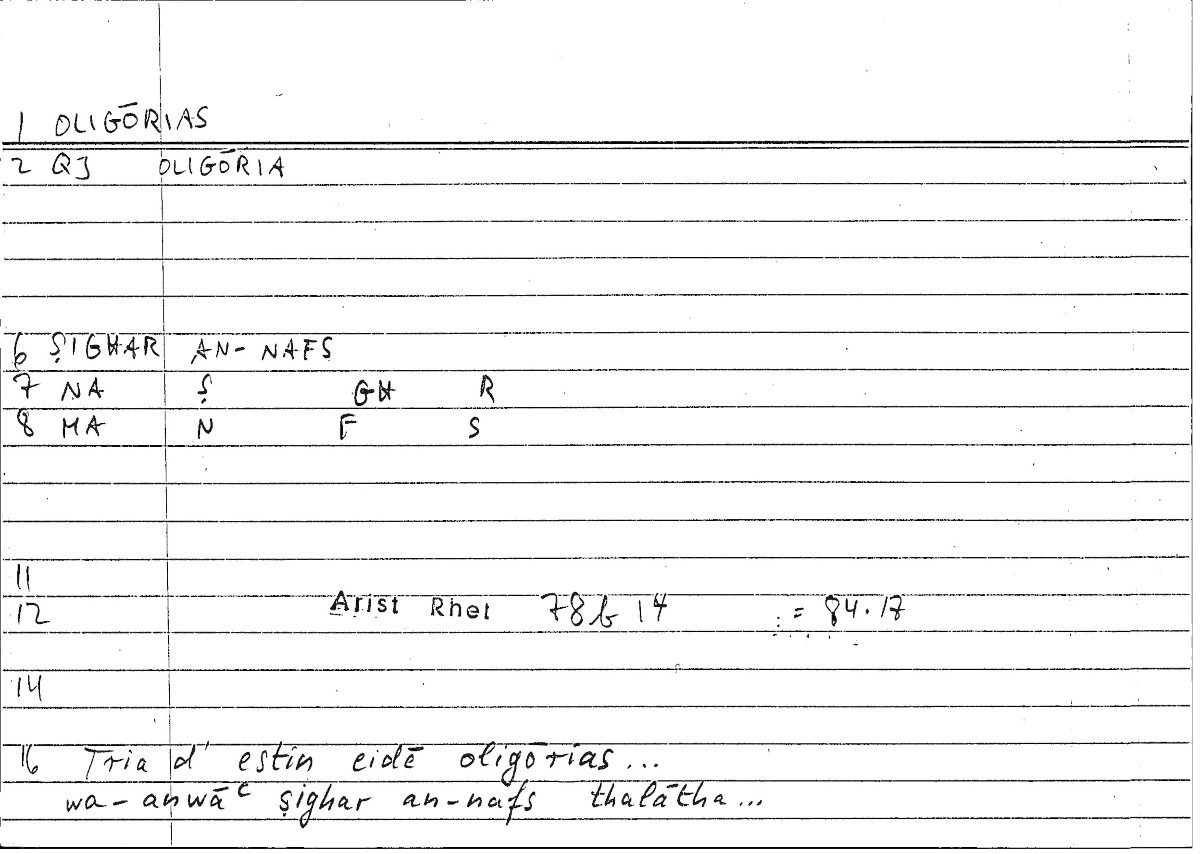 1 OLIGŌRIAS
2 QJ OLIGŌRIA
6 ṢIGHAR AN-NAFS
7 NA Ṣ GH R
8 MA N F S
11
12 Arist Rhet 78b14 = 84.17
14
16 Tria d' estin eidē oligōrias...
wa-anwāʿ ṣighar an-nafs thalātha...